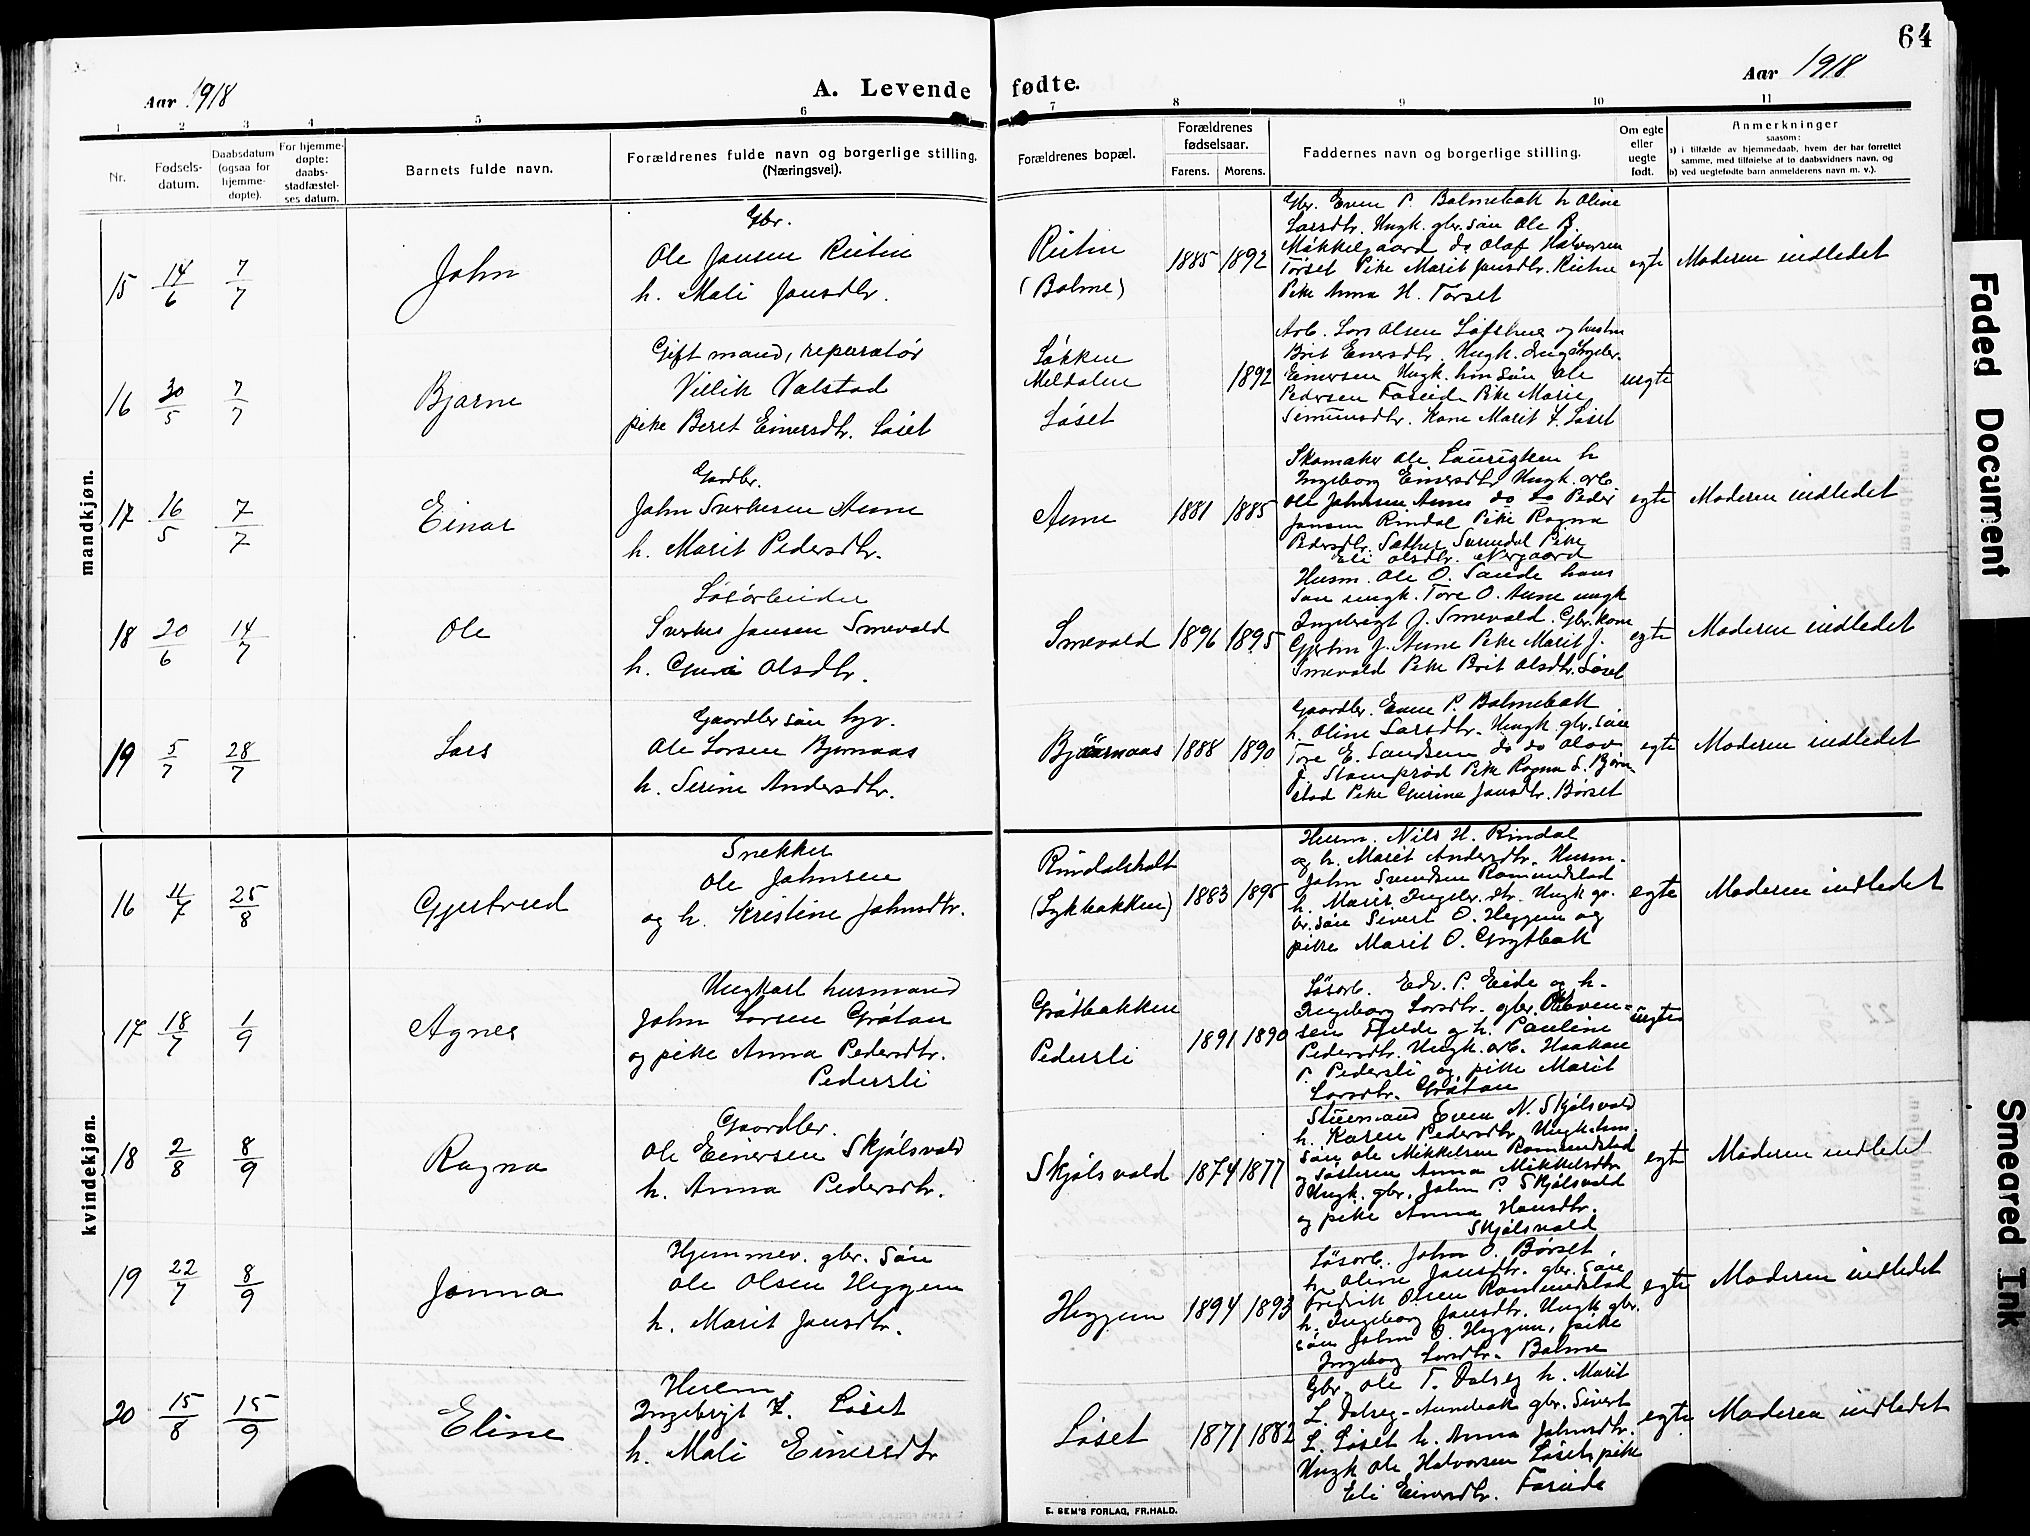 64
Aar 1918
A. Levende fødte.
Aar 1918
1 2 3 4 5 6 7 8 9 10 11
Nr.
Fødsels-
datum.
Daabsdatum
(ogsaa for
hjemme-
døpte).
For hjemme-
døpte:
daabs-
stadfæstel-
ses datum.
Barnets fulde navn.
Forældrenes fulde navn og borgerlige stilling.
(Næringsvei).
Forældrenes bopæl.
Forældrenes
fødselsaar.
Farens. Morens.
Faddernes navn og borgerlige stilling.
Om egte
eller
uegte
født.
Anmerkninger
saasom:
a) i tilfælde av hjemmedaab, hvem der har forrettet
samme, med tilføielse af to daabsvidners navn, og
b) ved uegtefødte barn anmelderens navn m. v.).
mandkjøn.
15 14/6 7/7 John
Gbr.
Ole Jansen Rutin
h. Mali Jonsdtr.
Rutin
(Bolme)
1885 1892
Gbr. Even P. Bolmebak h Oline
Larsdtr. Ungk. gbr. søn Ole R.
Møkkelgaard do Olaf Halvorsen
Torset Pike Marit Jonsdtr. Rutin
Pike Anna H. Torset
egte Moderen indledet
16 30/5 7/7 Bjarne
Gift mand, reparatør
Villik Valstad
pike Beret Einersdtr. Løset
Løkken
Meldalen
Løset
1892
Arb. Lars Olsen Løfthug og hustru
Brit Enersdtr. Ungk.
Einersen Ungk. hm søn Ole
Pedersen Faseid Pike Marie
Simunsdtr. Kone Marit I. Løset
uegte
17 16/5 7/7 Einar
Gaardbr.
John Sverkesen Aune
h. Marit Pedersdtr.
Aune
1881 1885
Skomaker Ole Lauritzen h
Ingeborg Einersdtr Ungk. arb
Ole Johnsen Aunes do do Peder
Jonsen Rindal Pike Ragna
Pedersdtr. Sæther Surendal Pike
Eli Olsdtr. Nergaard
egte Moderen indledet
18 20/6 14/7 Ole
Løsarbeider
Sverke Jansen Smevold
h. Guri Olsdtr.
Smevold 1896 1895
Husm. Ole O. Sande hans
søn ungk. Tore O. Aune ungk
Ingebrigt J. Smevald. Gbr. kone
Gjertru J. Aune Pike Marit J.
Smevold Pike Brit Olsdtr. Løset
egte Moderen indledet
19 5/7 28/7 Lars
Gaardbr søn byr.
Ole Larsen Bjørnaas
h. Serine Andersdtr.
Bjørnaas 1888 1890
Gaardbr. Even P. Bolmebak
h. Oline Larsdtr. Ungk gbr. søn
Tore E. Sandsen do do Olav
J. Stomprød Pike Ragna L. Bjørn-
stad Pike Gurine Jonsdtr. Børset
egte Moderen indledet
kvindekjøn.
16 11/7 25/8 Gjertrud
Snekker
Ole Johnsen
og h. Kristine Johnsdtr.
Rindalsholt
(Lykbakken)
1883 1895
Husm. Nils H. Rindal
og h. Marit Andersdtr. Husm.
John Svendsen Romundstad
h. Marit Ingebr. dtr. Ungk go.
br. søn Sivert O. Heggem og
pike Marit O. Grytbak
egte Moderen indledet
17 18/7 1/9 Agnes
Ungkarl husmand
John Larsen Grøtan
og pike Anna Pedersdtr.
Pedersli
Grøtbakken
Pedersli
1891 1890
Løsarb. Edv. P. Eide og h.
Ingeborg Larsdtr. gbr. Ole Even-
sen Fjelde og h. Pauline
Pedersdtr. Ungk. arb. Haakon
P. Pedersli og pike Marit
Larsdtr. Grøtan
uegte
18 2/8 8/9 Ragna
Gaardbr.
Ole Einersen Skjølsvold
h. Anna Pedersdtr.
Skjølsvold 1874 1877
Stuemand Even N. Skjølsvold
h. Karen Pedersdtr. Ungk. hm.
søn Ole Mikkelsen Romundstad
og søsteren Anna Mikkelsdtr.
Ungk. gbr. John P. Skjølsvold
og pike Anna Hansdtr.
Skjølsvold
egte Moderen indledet
19 22/7 8/9 Jonna
Hjemmev. gbr. søn
Ole Olsen Heggem
h. Marit Jonsdtr.
Heggem 1894 1893
Løsarb. John O. Børset
h. Oline Jonsdtr. gbr. søn
Fredrik Olsen Romundstad
h. Ingeborg Jonsdtr. Ungk gbr.
søn John O. Heggem, pike
Ingeborg Larsdtr. Bolme
egte Moderen indledet
20 15/8 15/9 Eline
Husm.
Ingebrigt I. Løset
h. Mali Einersdtr
Løset 1871 1882
Gbr. Ole T. Dalseg h. Marit
L. Dalseg-Aunebak gbr. Sivert
L. Løset h. Anna Johnsdtr.
Ungk Ole Halvorsen Løset, pike
Eli Einersdtr. Faseide
egte Moderen indledet
E. SEM'S FORLAG, FR.HALD.
Faded Document
Smeared Ink